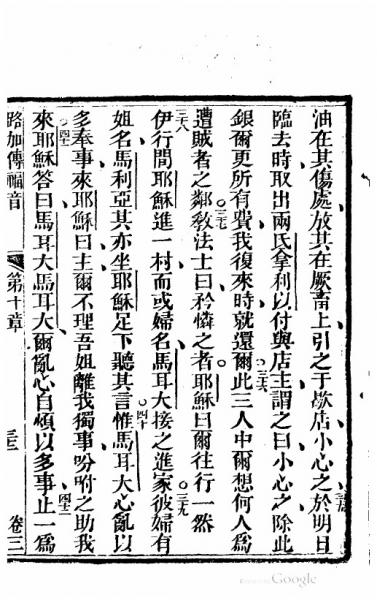 油在其傷處放其在厥畜上引之于歇店小心之於明日
三五
臨去時取出兩氐拿利以付與店主謂之曰小心之除此
銀爾更所有費我復來時就還爾此三人中爾想何人爲
三六
遭賊者之鄰敎法士曰矜憐之者耶穌曰爾往行一然
三七
伊行間耶穌進一村而或婦名馬耳大接之進家彼婦有
三八
三九
姐名馬利亞其亦坐耶穌足下聽其言惟馬耳大心亂以
四十
多奉事來耶穌曰主爾不理吾姐離我獨事吩咐之助我
來耶穌答曰馬耳大馬耳大爾亂心自煩以多事止一爲
四一
四二
路加傳福音 第十章 卷三
Google